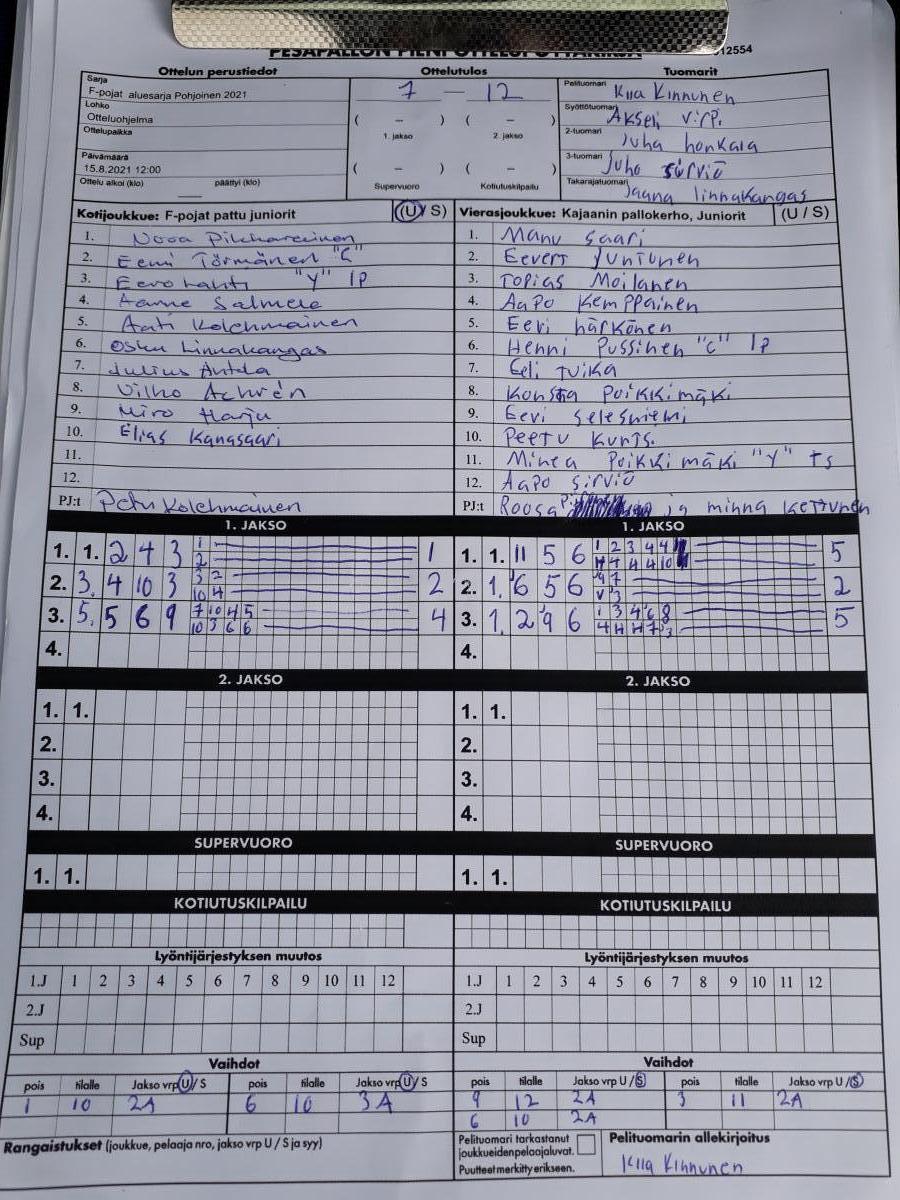 PESÄPALLON PIENI OTTELUPÖYTÄKIRJA 12554
Ottelun perustiedot Ottelutulos Tuomarit
Sarja
F-pojat aluesarja Pohjoinen 2021
Lohko
Otteluohjelma
Ottelupaikka
Päivämäärä
15.8.2021 12:00
Ottelu alkoi (klo) päättyi (klo)
7 — 12
( – ) ( – )
1. jakso 2. jakso
( – ) ( – )
Supervuoro Kotiutuskilpailu
Pelituomari Kiia Kinnunen
Syöttötuomari Akseli Virp.
2-tuomari Juha honkala
3-tuomari Juho sirviö
Takarajatuomari Jaana linnakangas
Kotijoukkue: F-pojat pattu juniorit (U / S)
1. Nooa
2. Eemi Törmänen "C"
3. Eero Lahti "Y" lp
4. Aarne Salmela
5. Aati Kolehmainen
6. Osku Linnakangas
7. Julius Anttila
8. Vilho Achrén
9. Miro Harju
10. Elias Kanasaari
11.
12.
PJ:t Petu Kolehmainen
Vierasjoukkue: Kajaanin pallokerho, Juniorit (U / S)
1. Manu Saari
2. Eevert Juntunen
3. Topias Moilanen
4. Aapo Kemppainen
5. Eevi härkönen
6. Henni Pussinen "C" lp
7. Eeli tuika
8. Konsta Poikkimäki
9. Eevi selesniemi
10. Peetu Kunts.
11. Minea Poikkimäki "Y" ts
12. Aapo sirviö
PJ:t Roosa ja minna kettunen
1. JAKSO
1. 1. 2 4 3 1
2. 3. 4 10 3 2
3. 5. 5 6 9 4
4.
1. JAKSO
1. 1. 11 5 6 5
2. 1. 6 5 6 2
3. 1. 2 9 6 5
4.
2. JAKSO
1. 1.
2.
3.
4.
2. JAKSO
1. 1.
2.
3.
4.
SUPERVUORO
1. 1.
SUPERVUORO
1. 1.
KOTIUTUSKILPAILU
KOTIUTUSKILPAILU
Lyöntijärjestyksen muutos
1.J 1 2 3 4 5 6 7 8 9 10 11 12
2.J
Sup
Lyöntijärjestyksen muutos
1.J 1 2 3 4 5 6 7 8 9 10 11 12
2.J
Sup
Vaihdot
pois tilalle Jakso vrp U / S pois tilalle Jakso vrp U / S
1 10 2A 6 10 3A
Vaihdot
pois tilalle Jakso vrp U / S pois tilalle Jakso vrp U / S
9 12 2A 3 11 2A
6 10 2A
Rangaistukset (joukkue, pelaaja nro, jakso vrp U / S ja syy)
Pelituomari tarkastanut
joukkueiden pelaajaluvat.
Puutteet merkitty erikseen.
Pelituomarin allekirjoitus
Kiia Kinnunen